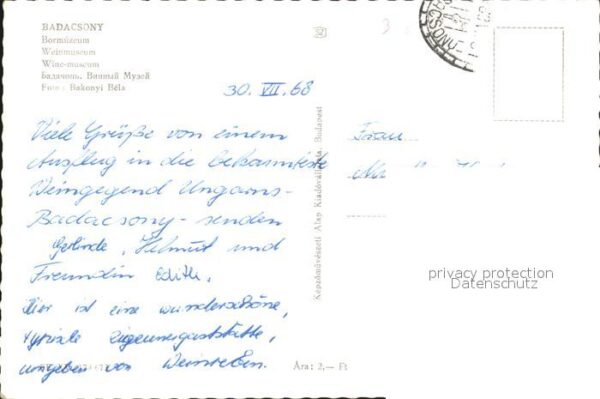 BADACSONY
Bormúzeum
Weinmuseum
Wine-museum
Бадачонь. Винный Музей
Foto: Bakonyi Béla
30. VII. 68
Viele Grüße von einem
Ausflug in die bekannteste
Weingegend Ungarns-
Badacsony - senden
Gerlinde, Helmut und
Freundin Edith.
Hier ist eine wunderschöne,
typische Zigeunergaststätte,
umgeben von Weinreben.
Képzőművészeti Alap Kiadóvállalata, Budapest
Frau
privacy protection
Datenschutz
Ára: 2,— Ft